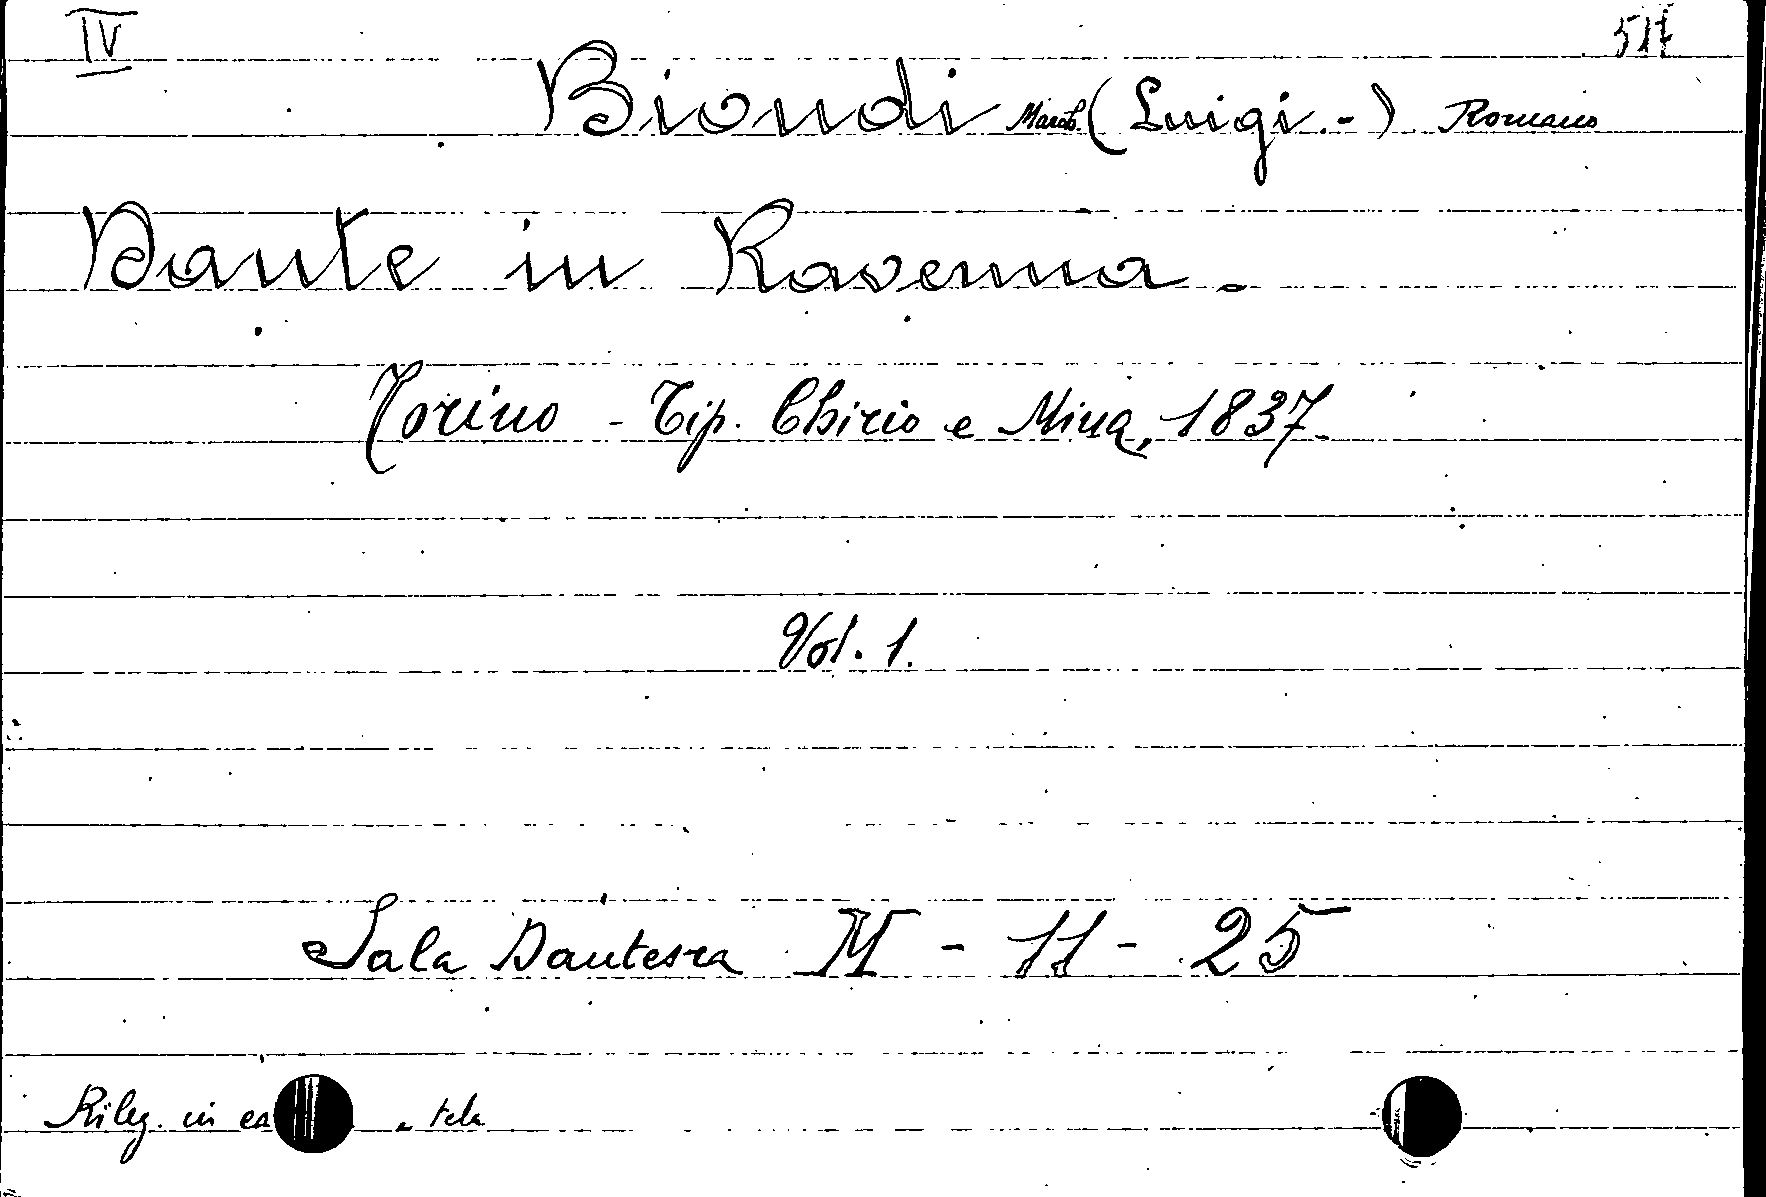 IV 517
Biondi March. (Luigi.-) Romano
Dante in Ravenna.
Torino - Tip. Chirio e Mina, 1837.
Vol. 1.
Sala Dantesca M - 11 - 25
Rileg. in tela